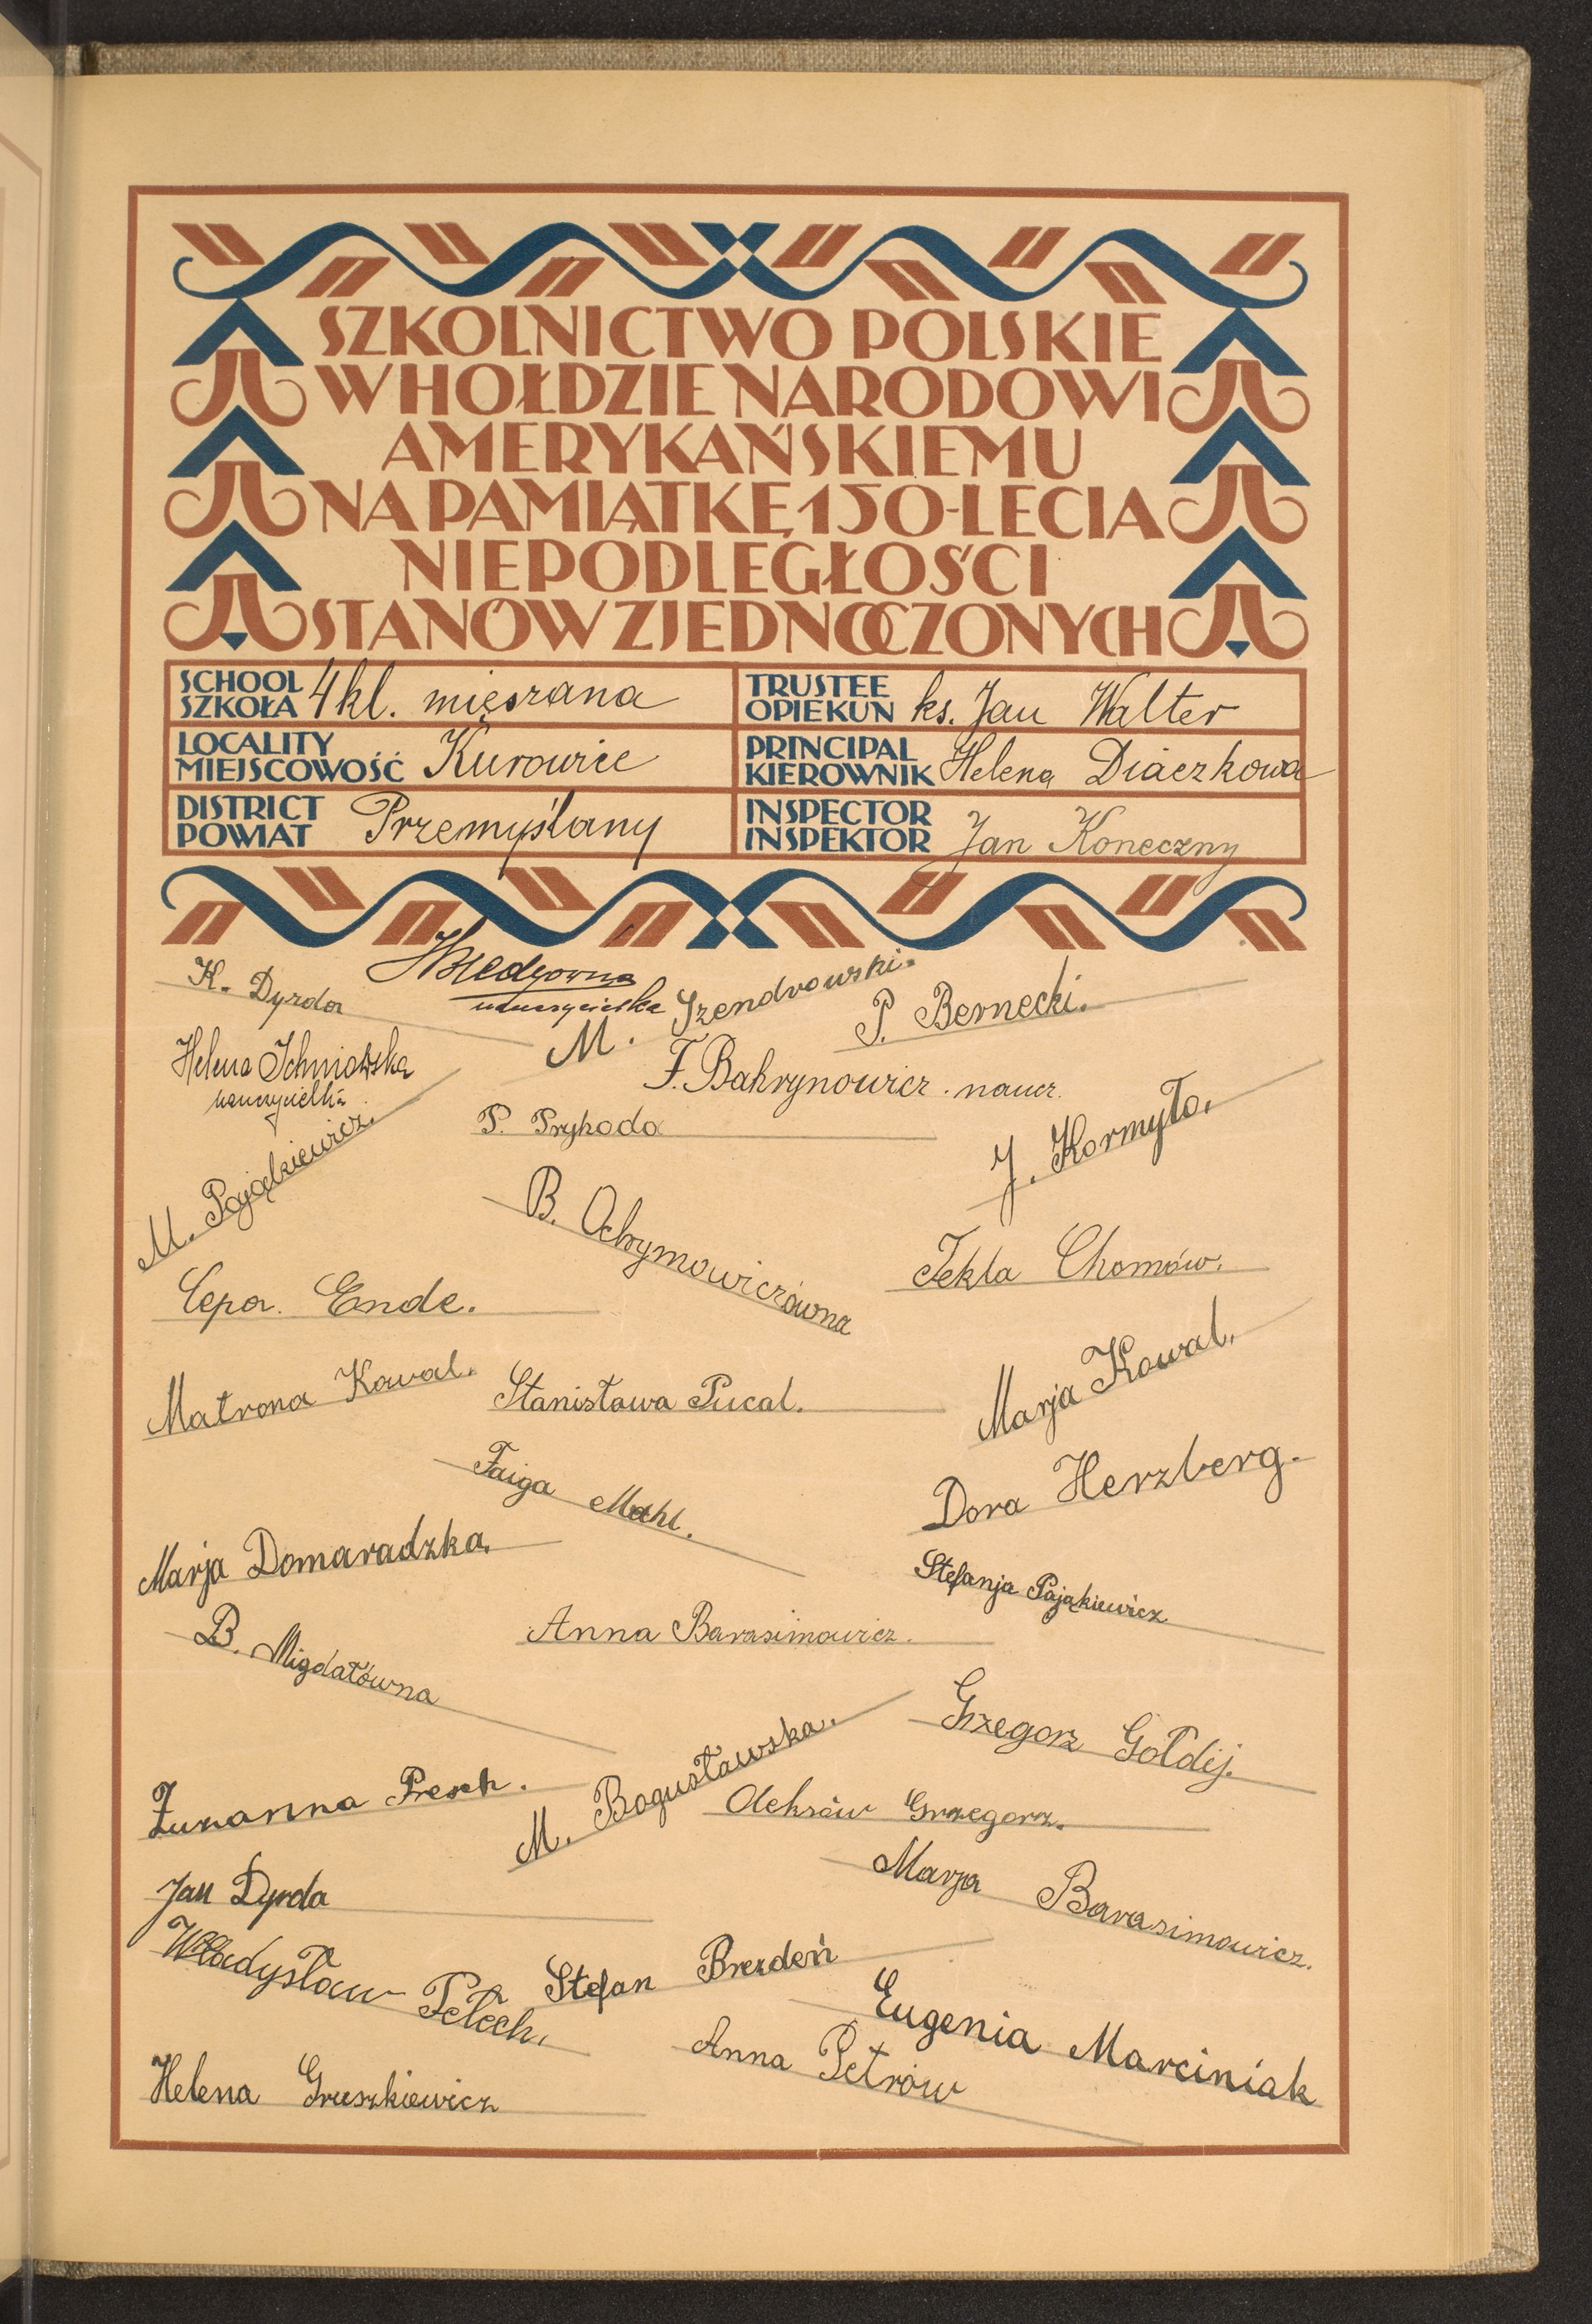 SZKOLNICTWO POLSKIE
W HOŁDZIE NARODOWI
AMERYKAŃSKIEMU
NA PAMIĄTKĘ 150-LECIA
NIEPODLEGŁOŚCI
STANÓW ZJEDNOCZONYCH
SCHOOL
SZKOŁA 4 kl. mięszana
TRUSTEE
OPIEKUN ks. Jan Walter
LOCALITY
MIEJSCOWOŚĆ Kurowice
PRINCIPAL
KIEROWNIK Helena Diaczkowa
DISTRICT
POWIAT Przemyślany
INSPECTOR
INSPEKTOR Jan Koneczny
K. Dyrda
nauczycielka
M. Szendrowski.
P. Bernecki.
Helena
nauczycielka
F. Bahrynowicz . naucz.
M. Pająkiewicz.
P. Pryhoda
J. Kormyło.
B. Ochrymowiczówna
Tekla Chomów.
Cepa. Ende.
Matrona Kowal.
Stanisława Pucal.
Marja Kowal.
Faiga Mahl.
Dora Herzberg.
Marja Domaradzka.
Stefanja Pająkiewicz
B. Migdałówna
Anna Barasimowicz.
Grzegorz Gołdij.
Zuzanna Presch.
M. Bogusławska.
Oleksów Grzegorz.
Jan Dyrda
Marja Barasimowicz.
Władysław Petech.
Stefan Brezdeń
Eugenia Marciniak
Anna Petrów
Helena Gruszkiewicz